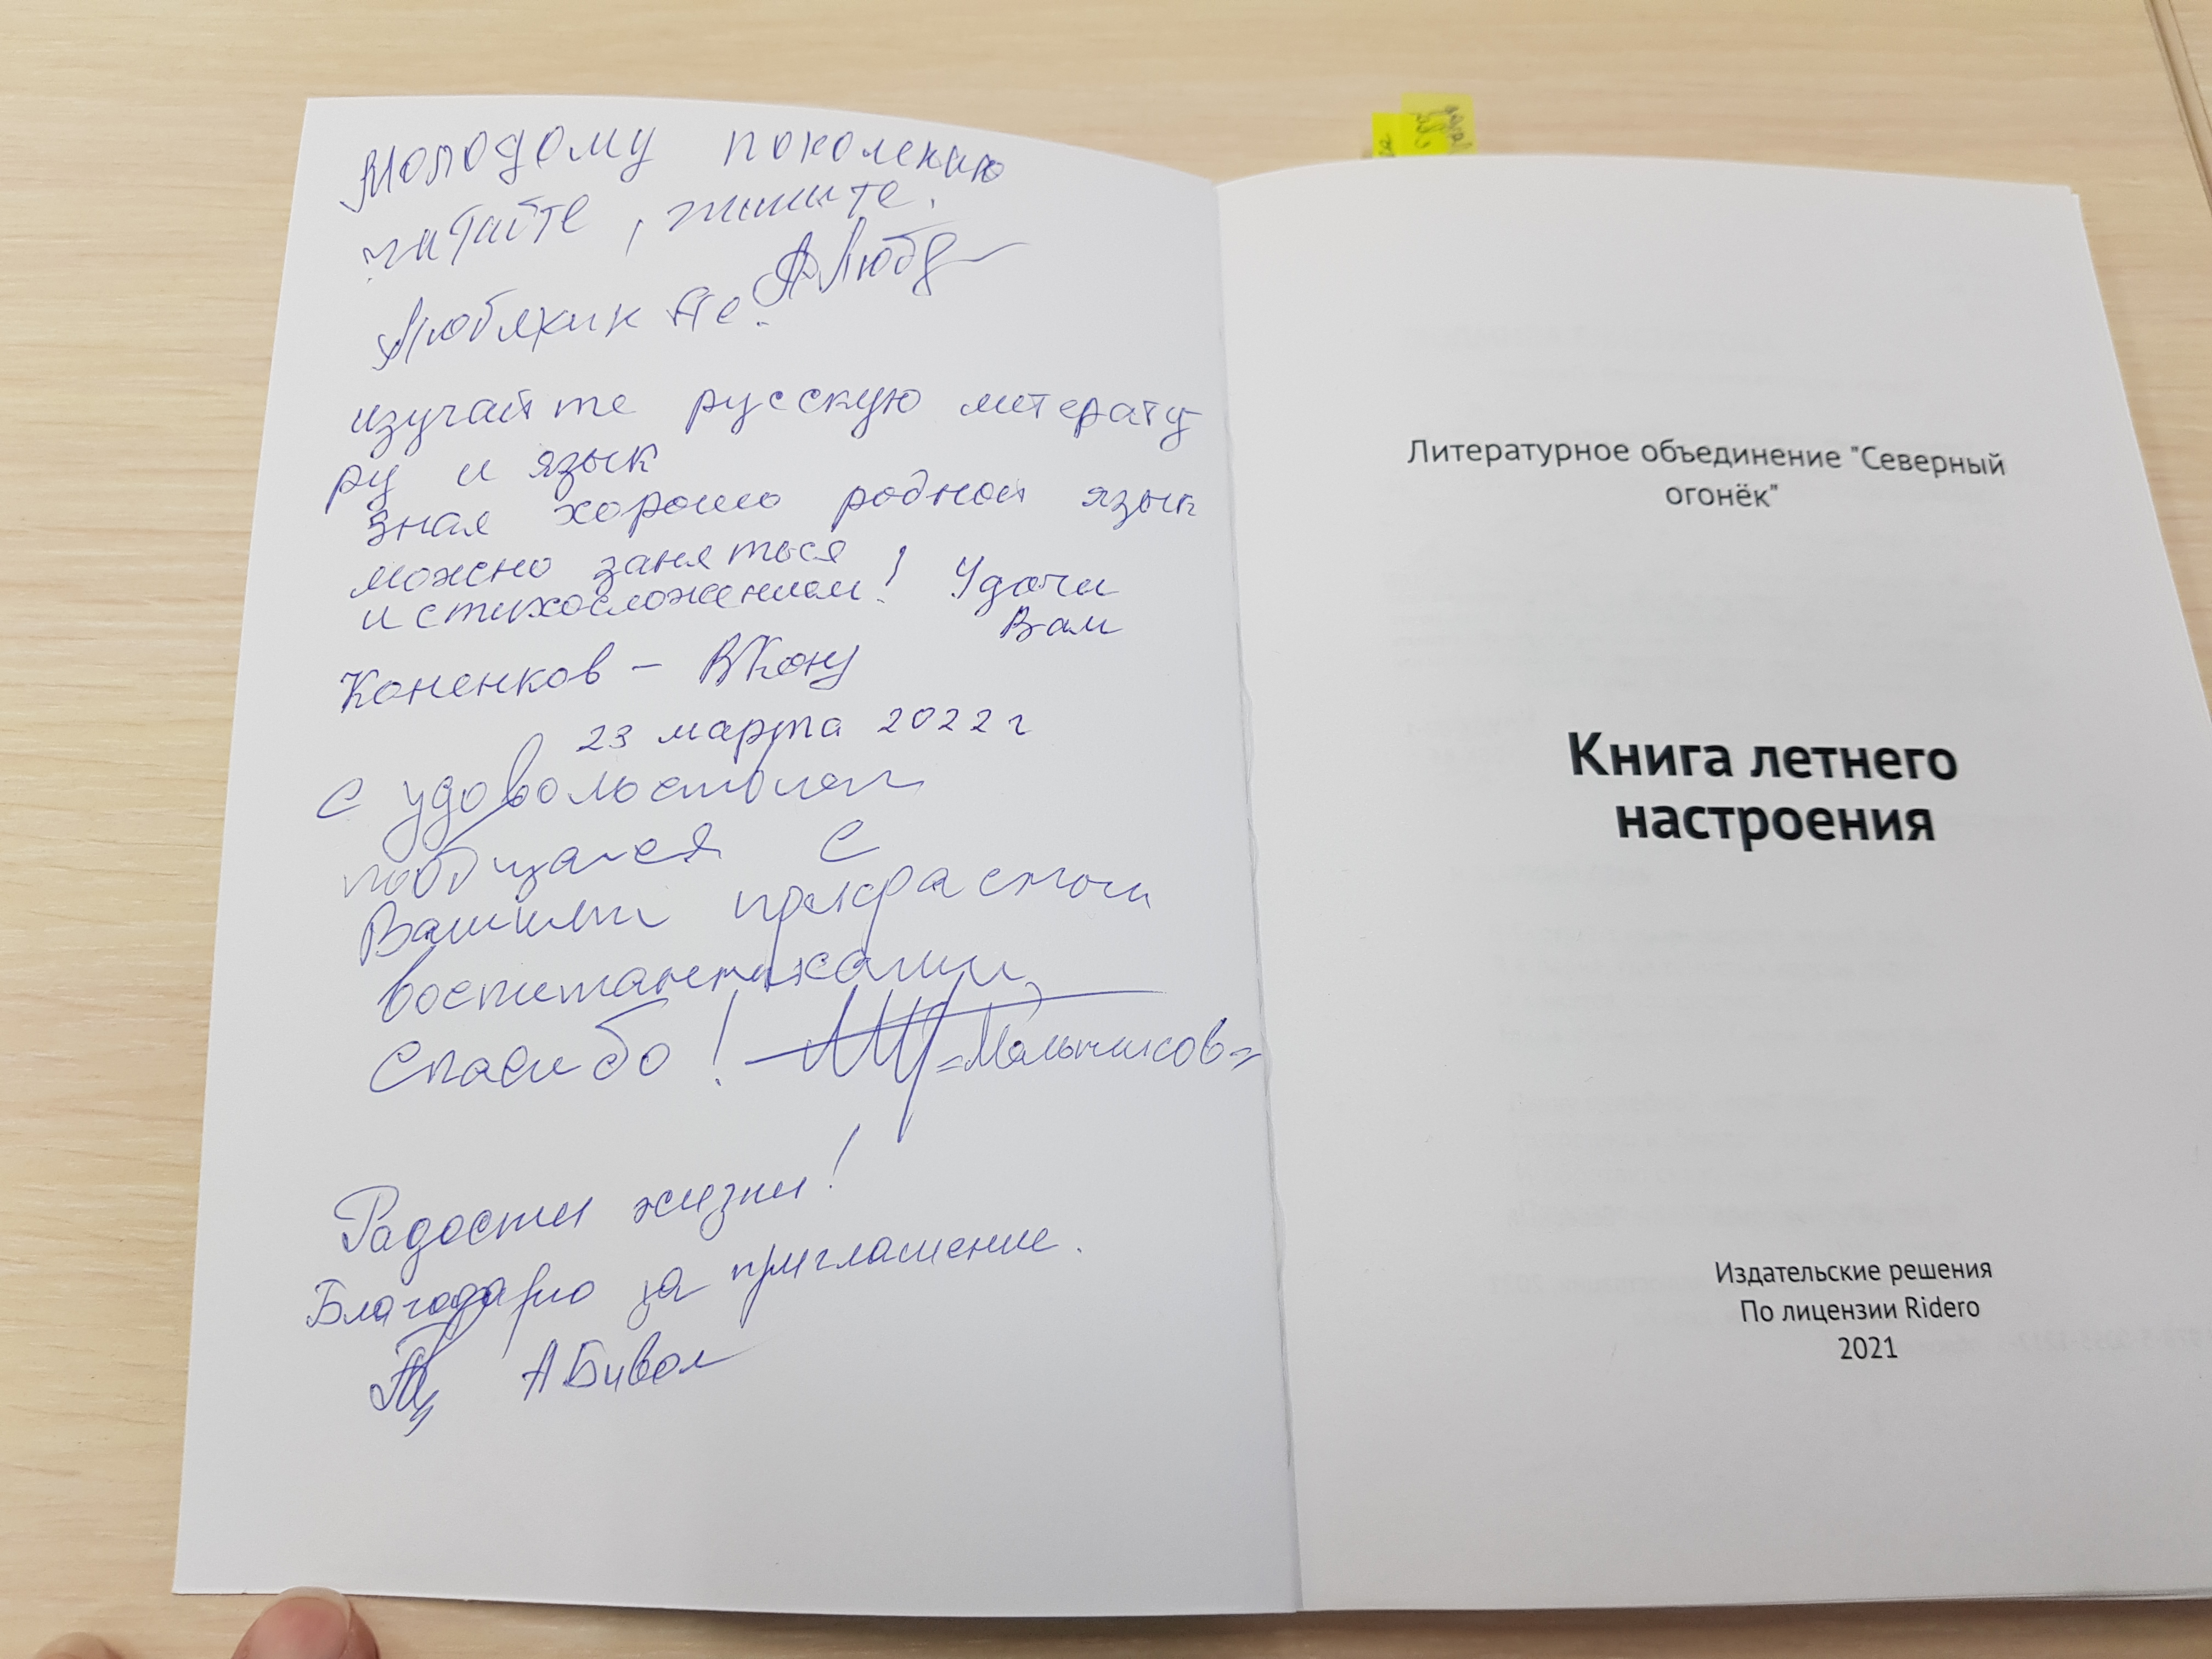 Молодому поколению
читайте, пишите.
изучайте русскую литерату
ру и язык
зная хорошо родной язык
можно заняться
и стихосложением! Удачи
Вам
Коненков - ВКону
23 марта 2022 г
С удовольствием
пообщался с
Вашими прекрасными
воспитанниками,
Спасибо! =Мальчиков=
Радости жизни!
Благодарю за приглашение.
А Бивол
Литературное объединение "Северный
огонёк"
Книга летнего
настроения
Издательские решения
По лицензии Ridero
2021